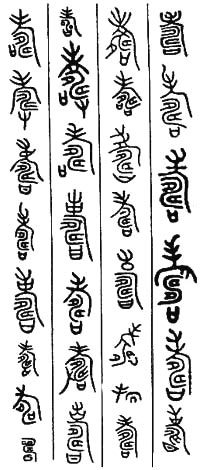 壽壽壽壽壽壽
壽壽壽壽壽壽壽
壽壽壽壽壽壽壽
壽壽壽壽壽壽壽